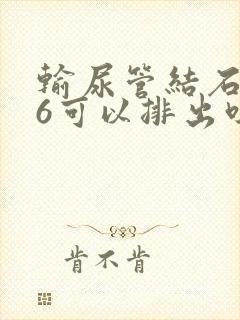 输尿管结石
6可以排出吗
肯不肯